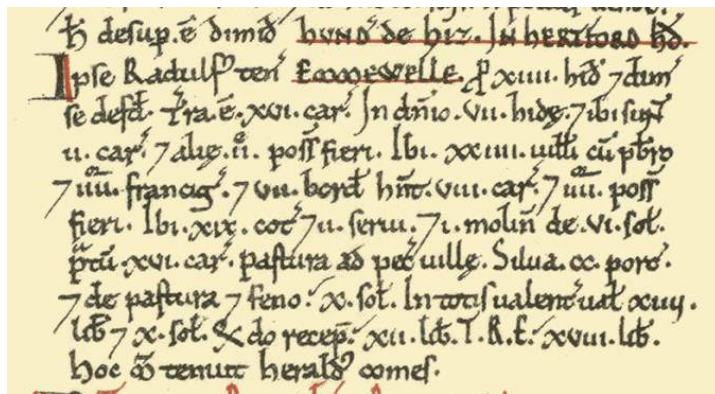 h̄ desup. ē dimid̄ hund̄ de hiz. In hertford h̄d.
Ipse Radulf' ten' Emmewelle. p xiiii. hid' 7 dim'
se defd'. Tr̄a. ē. xvi. car'. In dn̄io. vii. hidę. 7 ibi sunt
ii. car'. 7 alię. ii. poss̄ fieri. Ibi. xxiiii. uilli cū pb̄ro
7 iiii. francig'. 7 vii. bord' hn̄t. viii. car'. 7 iiii. poss̄
fieri. Ibi. xix. cot' 7 ii. serui. 7 i. molin' de. vi. sol'.
p̄tū. xvi. car'. pastura ad pec' uillę. Silua. cc. porc'.
7 de pastura 7 feno. x. sol'. In totis ualent' ual' xiiij.
lib' 7 x. sol'. Q̄do recep̄. xii. lib'. T. R. E. xviii. lib'.
hoc m̄ tenuit herald' comes.